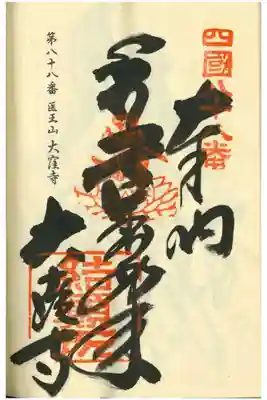 四國八十八番
奉納
如来
大窪寺
結願所
第八十八番 医王山 大窪寺